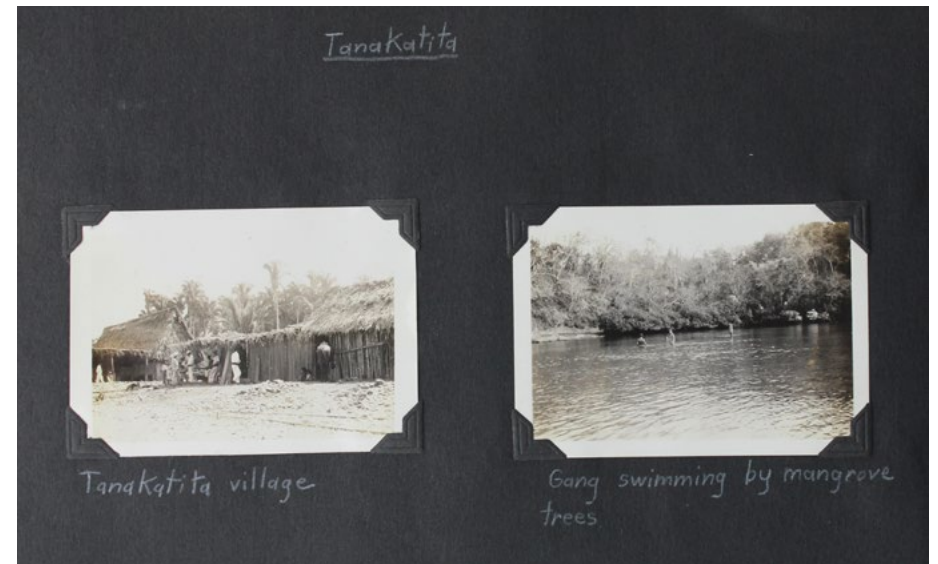 Tanakatita
Tanakatita village
Gang swimming by mangrove
trees